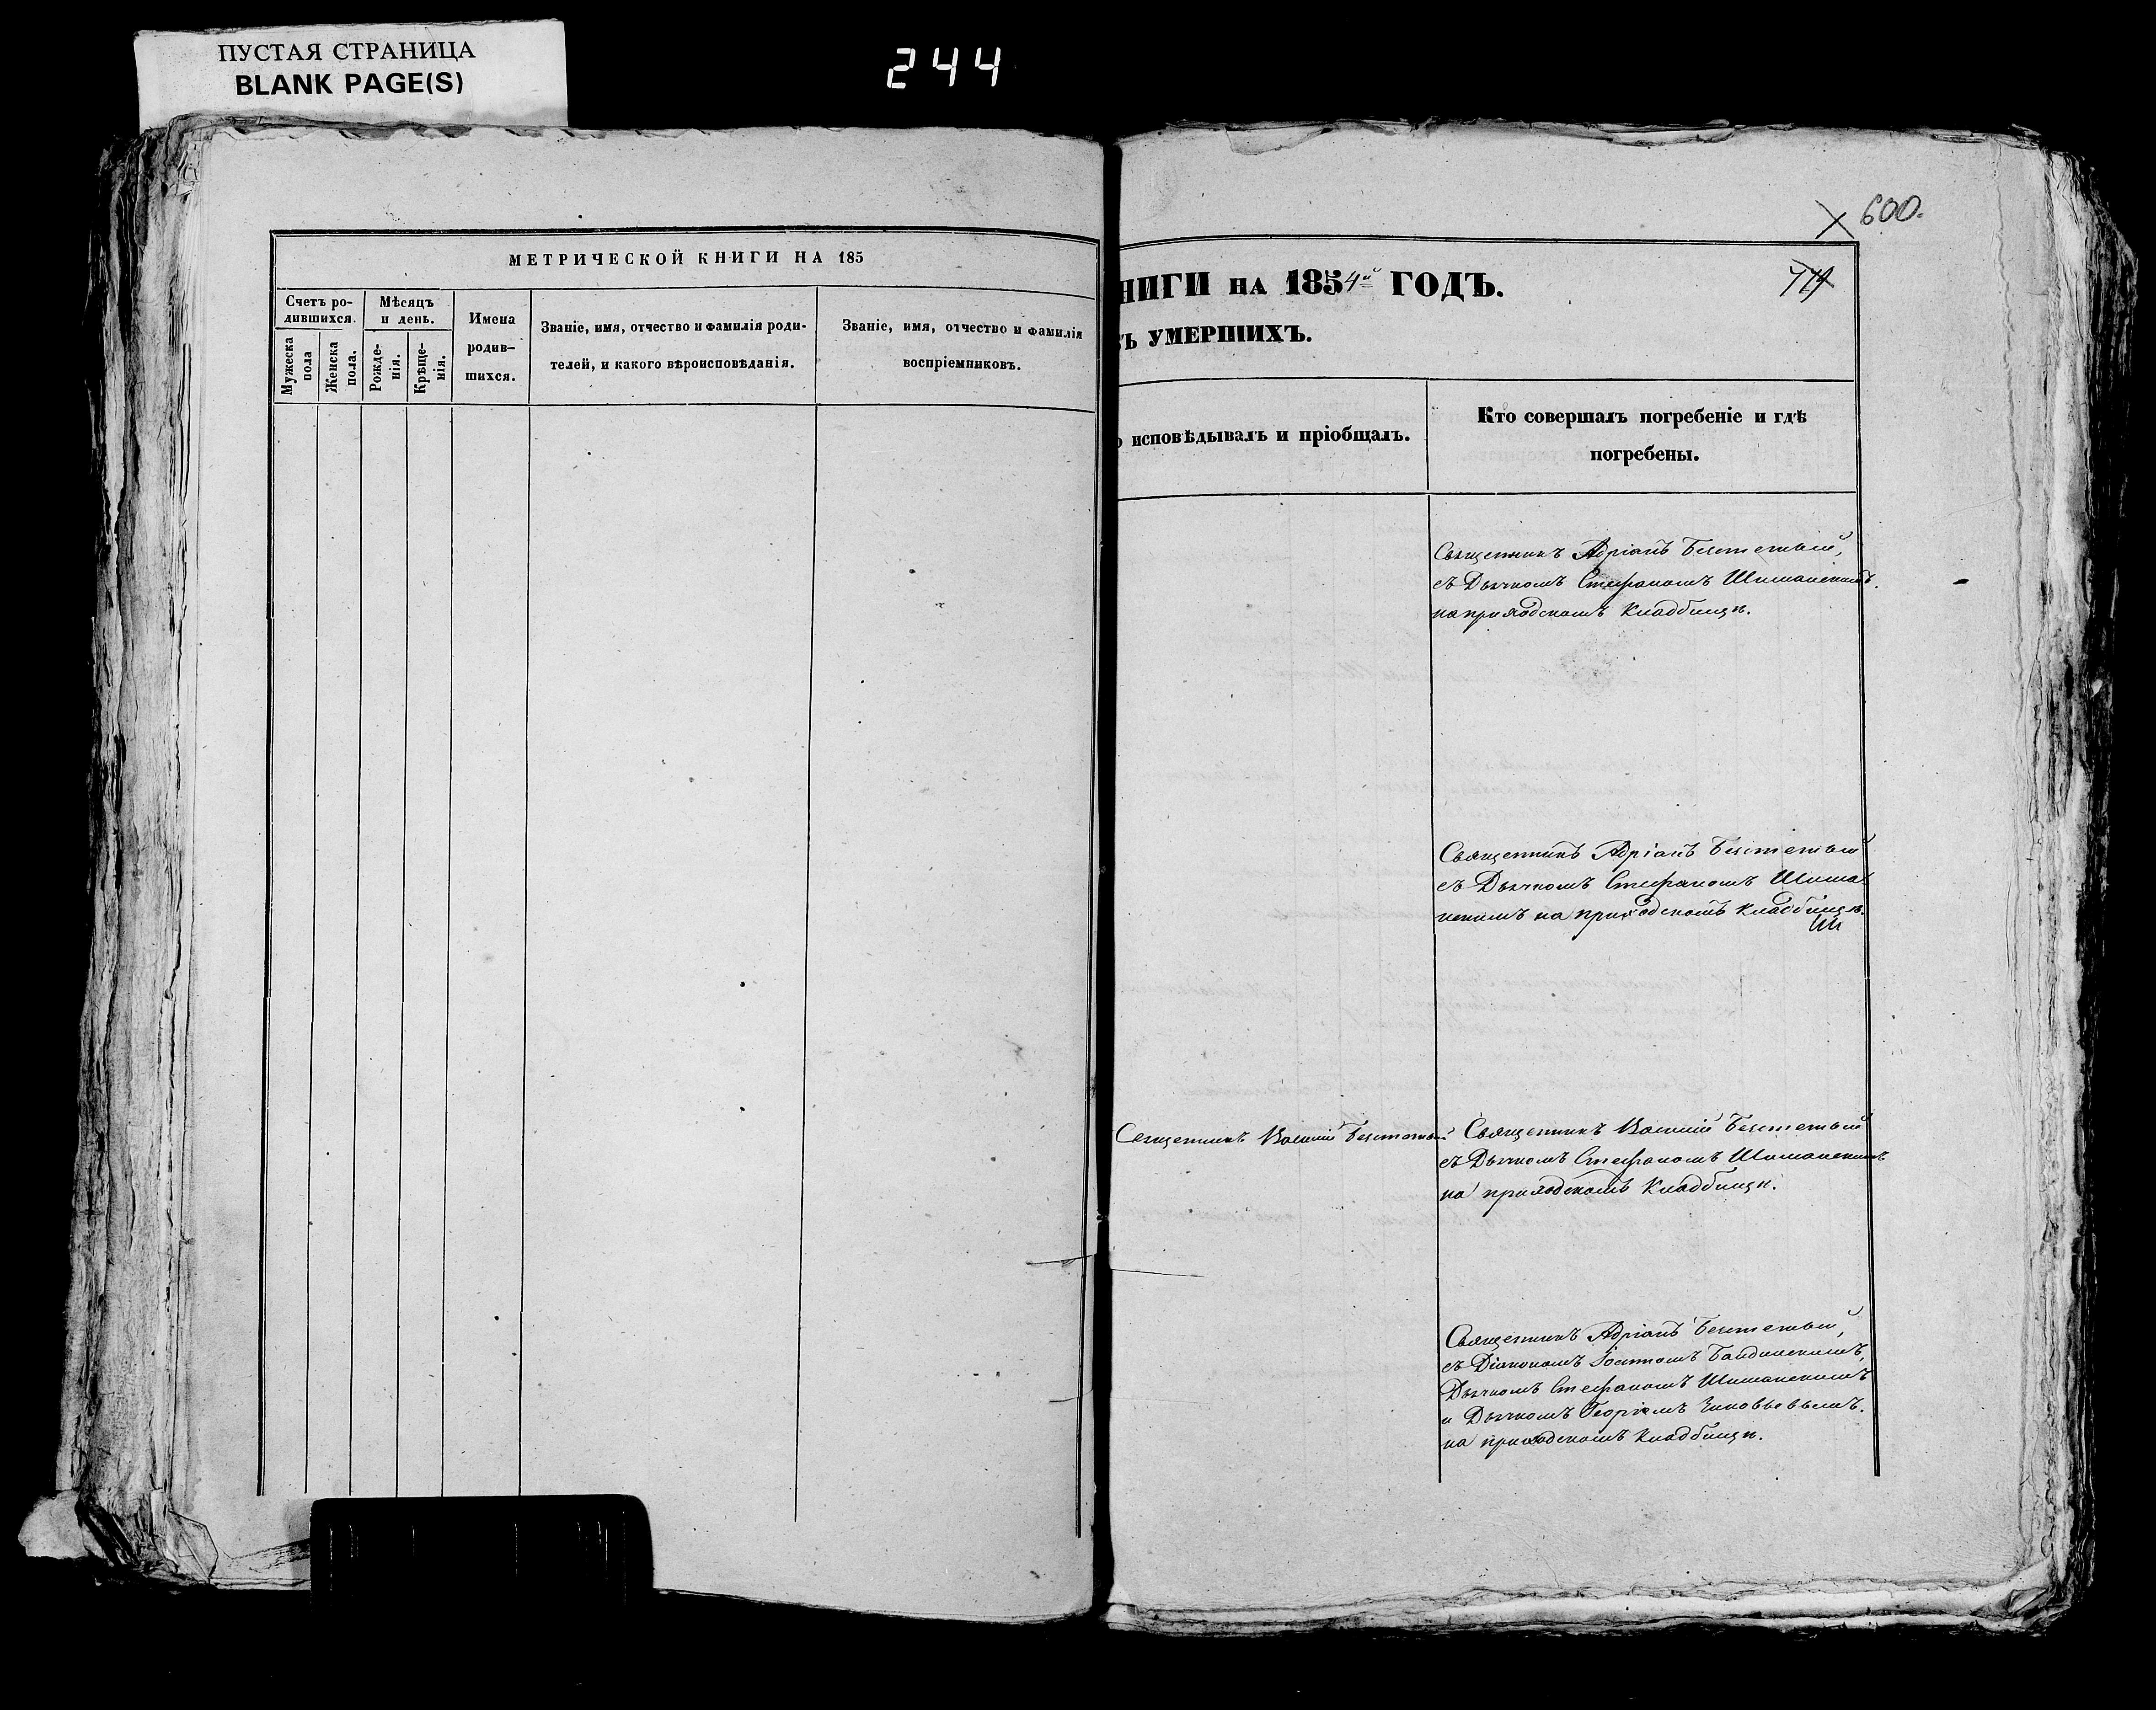 ПУСТАЯ СТРАНИЦА
BLANK PAGE(S)
244
МЕТРИЧЕСКОЙ КНИГИ НА 185
Счетъ ро-
дившихся.
Мужеска
пола
Женска
пола.
Мѣсяцъ
и день.
Рожде-
нія.
Крѣще-
нія.
Имена
родив-
шихся.
Званіе, имя, отчество и фамилія роди-
телей, и какого вѣроисповѣданія.
Званіе, имя, отчество и фамилія
воспріемниковъ.
600.
НИГИ НА 1854й ГОДЪ.
ТЪ УМЕРШИХЪ.
о исповѣдывалъ и пріобщалъ.
Кто совершалъ погребеніе и гдѣ
погребены.
Священникъ Адріанъ Безстетый,
съ Дьячкомъ Стефаномъ Шиманскимъ.
на приходскомъ Кладбищѣ.
Священникъ Адріанъ Безстетый
съ Дьячкомъ Стефаномъ Шима
нскимъ на приходскомъ кладбищѣ.
Священникъ Василій
Священникъ Василій Безстетый
съ Дьячкомъ Стефаномъ Шиманскимъ
на приходскомъ Кладбищѣ.
Священникъ Адріанъ Безстетый,
съ Діакономъ Іоанномъ
Дьячкомъ Стефаномъ Шиманскимъ
и Дьячкомъ Георгіемъ Зиновьевымъ.
на приходскомъ Кладбищѣ.